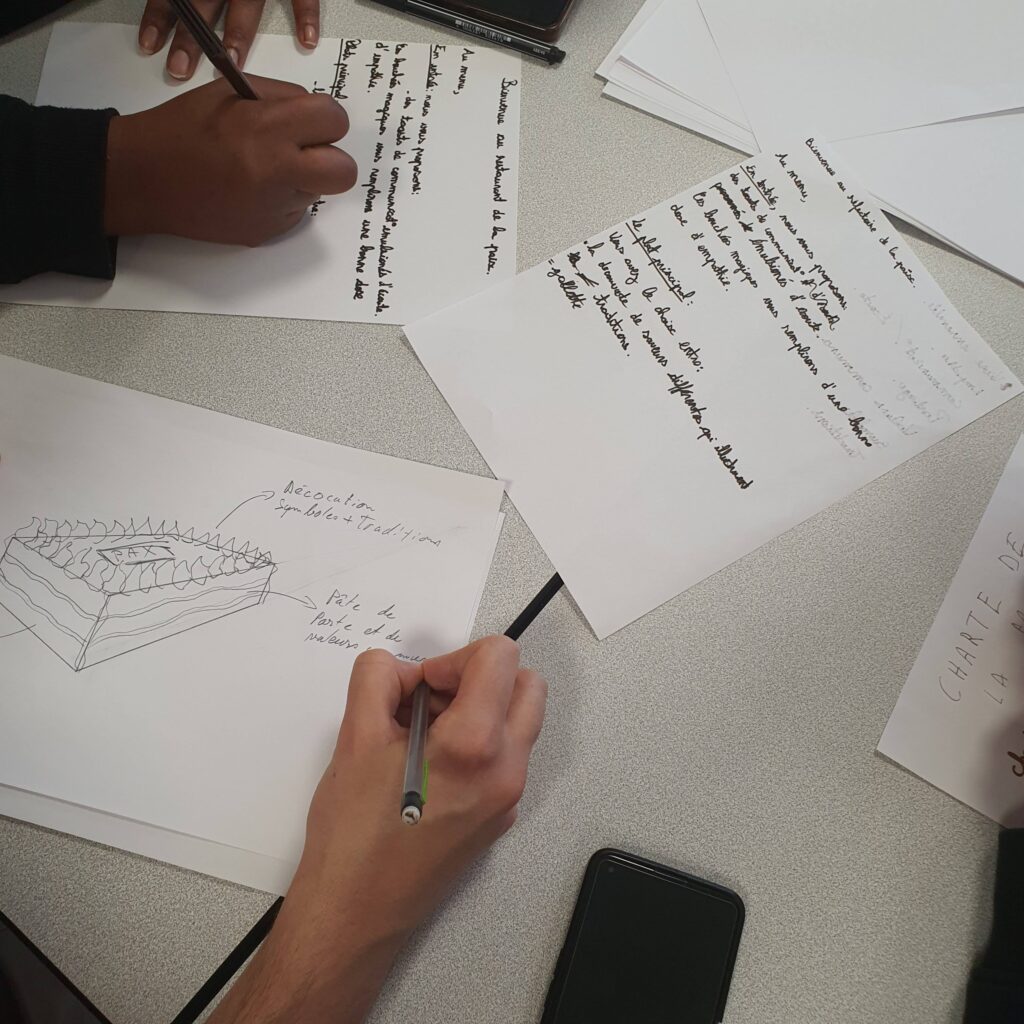 Bienvenue au restaurant de la paix.
Au menu,
En entrée: nous vous proposons:
- des toasts de communicat° émulsionés d'écoute
Ces bouchées magiques vous remplirons une bonne dose
d'empathie.
Plat principal
Bienvenue au réfectoire de la paix.
Au menu,
En entrée, nous vous proposons
des toasts de communicat°
émulsionés d'écoute.
Ces bouchées magiques vous remplirons d'une bonne
dose d'empathie.
Le plat principal:
Vous avez le choix entre:
- la de saveurs différentes qui illustrent
traditions.
Décocation
Symboles + Traditions
PAX
Pâte de
Parte et de
valeurs
CHARTE DE
LA